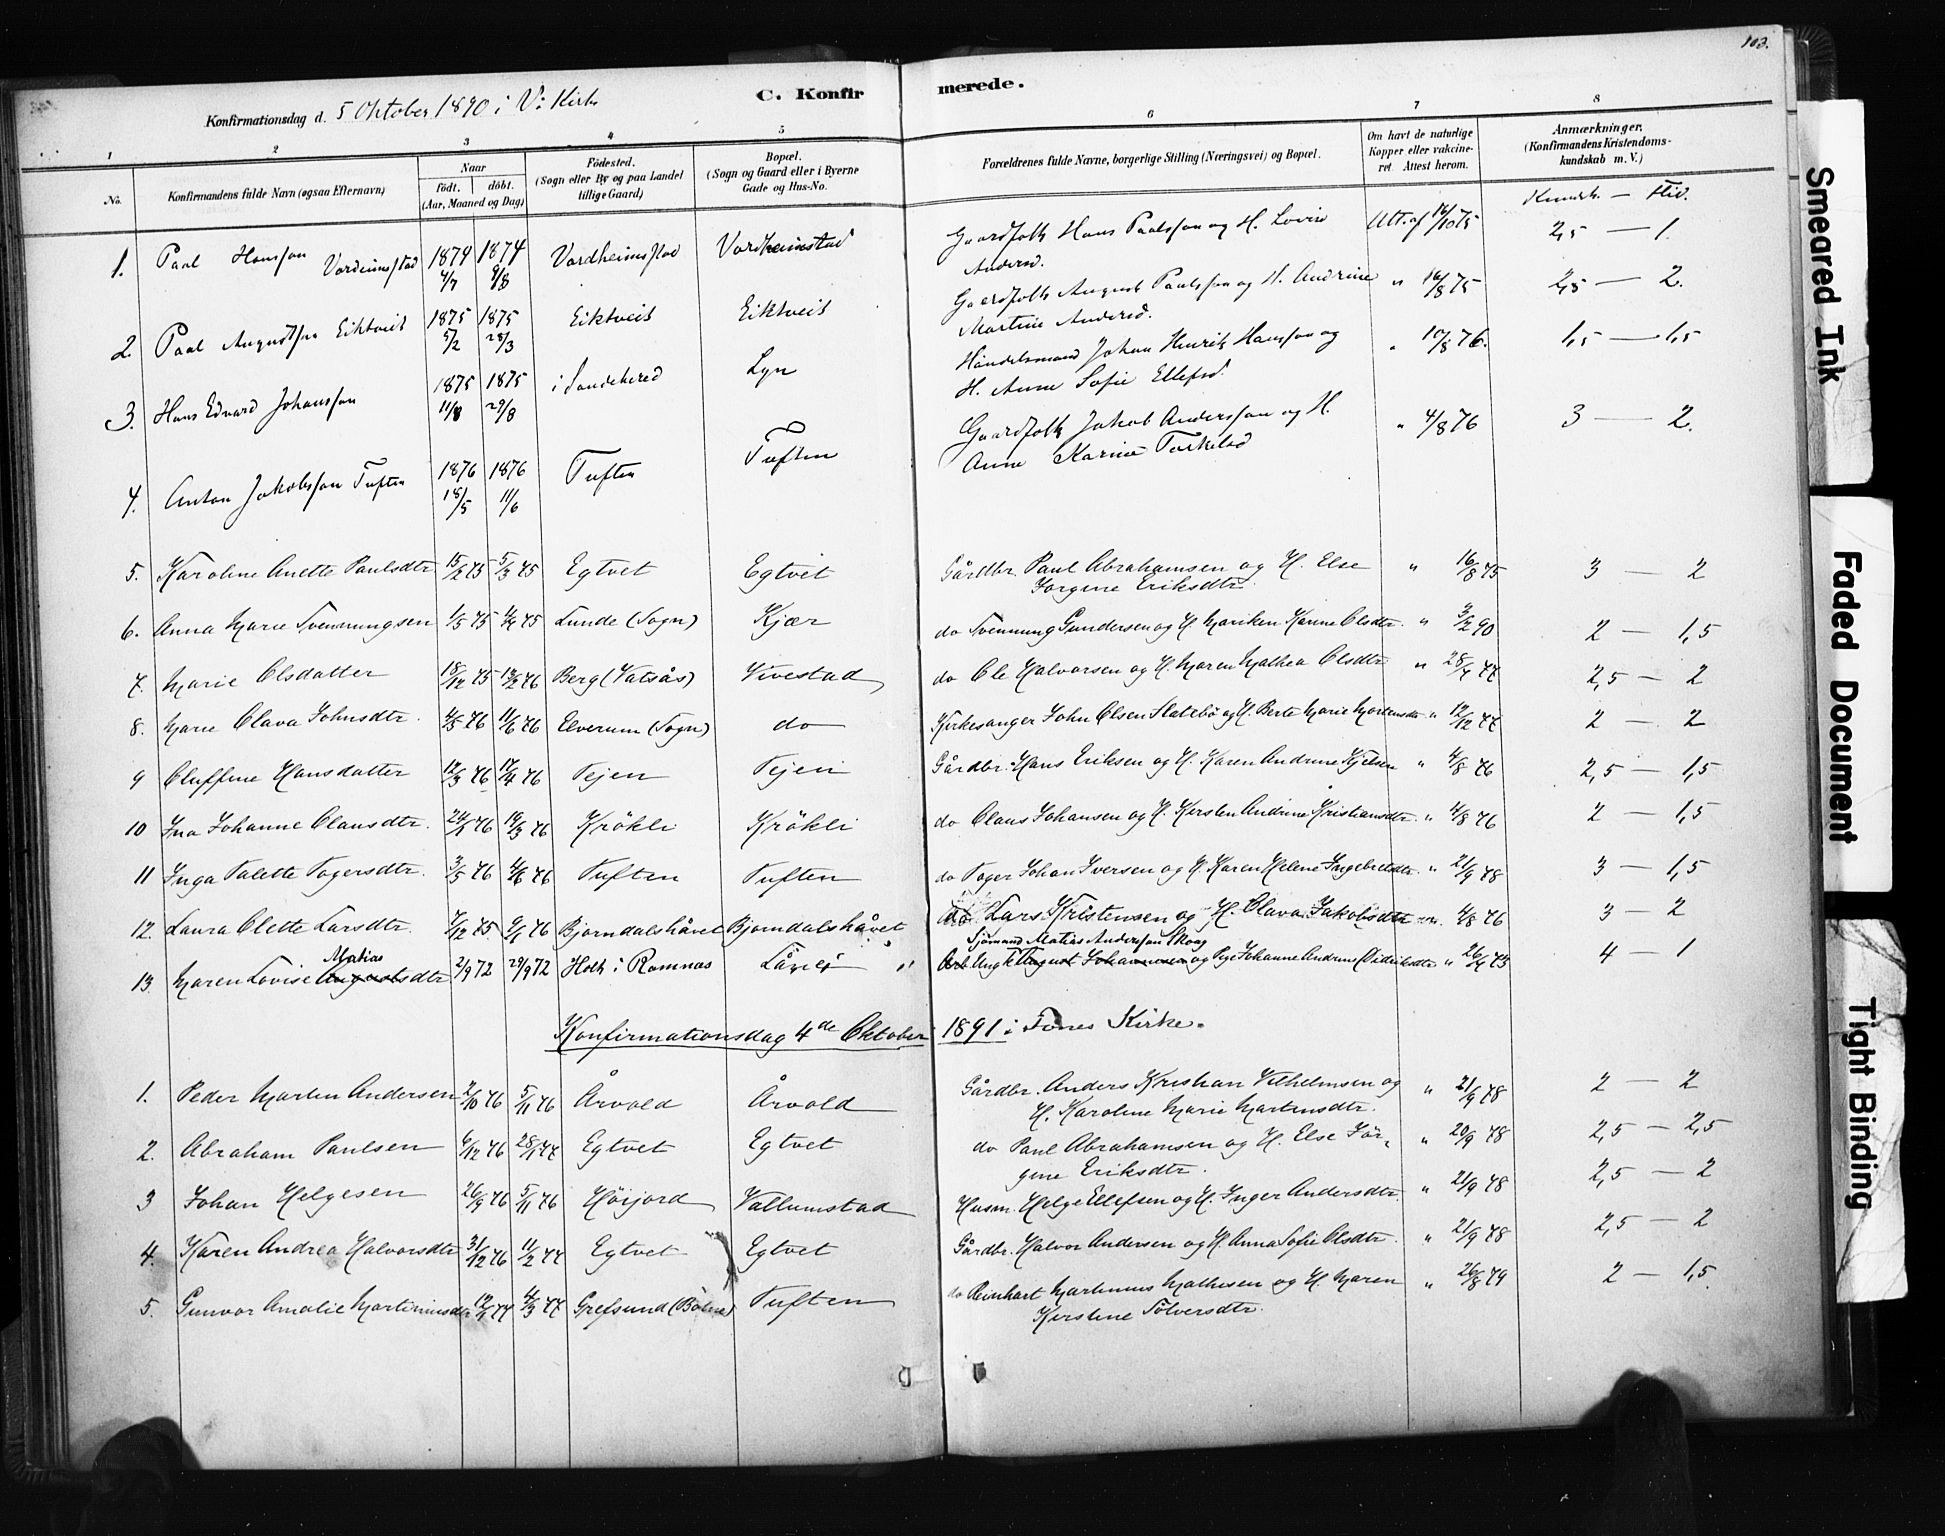 103.
Konfirmationsdag d. 5 Oktober 1890 i V: Kirke
C. Konfirmerede.
1 2 3 4 5 6 7 8
No. Konfirmandens fulde Navn (ogsaa Efternavn)
Naar født. døbt. (Aar, Maaned og Dag)
Fødested. (Sogn eller By og paa Landet tillige Gaard)
Bopæl. (Sogn og Gaard eller i Byerne Gade og Hus-No.
Forældrenes fulde Navne, borgerlige Stilling (Næringsvei) og Bopæl.
Om havt de naturlige Kopper eller vakcineret. Attest herom.
Anmærkninger. (Konfirmandens Kristendomskundskab m. V.)
Kundsk. — Flid.
1. Paal Hansson Vordeimstad 1874 4/7 1874 9/8 Vordheimstad Vordheimstad Gaardfolk Hans Paalsson og H. Lovise Andersd. Att. af 16/10 75 2,5 — 1.
2. Paal Augustsson Eiktveit 1875 5/2 1875 28/3 Eiktveit Eiktveit Gaardfolk August Paalsson og H. Andrine Martine Andersd. " 16/8 75 2,5 — 2.
3. Hans Edvard Johansson 1875 11/8 1875 29/8 i Sandehered Lyn Handelsmand Johan Henrik Hansson og H. Anne Sofie Ellefsd. " 10/8 76. 1,5 — 1,5
4. Anton Jakobsson Tuften 1876 18/5 1876 11/6 Tuften Tuften Gaardfolk Jakob Andersson og H. Anne Karine Torkilsd " 4/8 76 3 — 2.
5. Karoline Anette Paulsdtr 15/2 75 5/3 75 Egtvet Egtvet Gårdbr. Paul Abrahamsen og H. Else Jorgine Eriksdtr. " 16/8 75 3 — 2
6. Anna Marie Svenningsen 1/5 75 4/7 75 Lunde (Sogn) Kjær do Svenning Gundersen og H. Mariken Karine Olsdtr. " 3/2 90 2 — 1,5
7. Marie Olsdatter 18/12 75 13/2 76 Berg (Vatsås) Vivestad do Ole Halvorsen og H. Maren Mathea Olsdtr " 28/4 77 2,5 — 2
8. Marie Olava Johnsdtr. 4/5 76 11/6 76 Elverum (Sogn) do Kirkesanger John Olsen Slatebö og H. Berte Marie Mortensdtr " 12/12 77 2 — 2
9 Oluffine Hansdatter 12/3 76 17/4 76 Tejen Tejen Gårdbr. Hans Eriksen og H. Karen Andrine Kjelsen " 4/8 76 2,5 — 1,5
10 Ina Johanne Olausdtr. 24/1 76 19/3 76 Krökli Krökli do Olaus Johansen og H. Kersten Andrine Kristiansdtr. " 4/8 76 2 — 1,5
11 Inga Talette Togersdtr. 3/5 76 4/6 76 Tuften Tuften do Toger Johan Iversen og H. Karen Helene Ingebretsdtr. " 21/9 78 3 — 1,5
12. Laura Olette Larsdtr. 7/12 75 9/1 76 Bjorndalshåvet Bjorndalshåvet do Lars Kristensen og H. Olava Jakobsdtr " 4/8 76 3 — 2
Matias Sjömand Matias Anderssen Skoug
13. Maren Lovise Augustsdtr 2/9 72 29/9 72 Holt i Ramnas Ung K August Johannesen og Pige Johanne Andrine Didriksdtr " 26/4 75 4 — 1
Konfirmationsdag 4de Oktober 1891 i Fones Kirke.
1. Peder Martin Andersen 2/10 76 5/11 76 Årvold Årvold Gårdbr. Anders Kristian Vilhelmsen og H. Karoline Marie Martinsdtr. " 21/9 78 2 — 2
2. Abraham Paulsen 6/12 76 28/1 77 Egtvet Egtvet do Paul Abrahamsen og H. Else Jörgine Eriksdtr. " 20/9 78 2,5 — 2,5
3 Johan Helgesen 26/9 76 5/11 76 Höijord Vallumstad Husm. Helge Ellefsen og H. Inger Andersdtr. " 21/9 78 2,5 — 2
4. Karen Andrea Halvorsdtr 31/12 76 11/2 77 Egtvet Egtvet Gårdbr. Halvor Andersen og H. Anna Sofie Olsdtr. " 21/9 78 2,5 — 2
5. Gunvor Amalie Martiniusdtr 12/1 77 4/3 77 Grefsund (Botne) Tuften do Reinhart Martinius Mathisen og H. Maren Kirstine Sölversdtr. " 26/8 79 2 — 1,5
Smeared Ink
Faded Document
Tight Binding